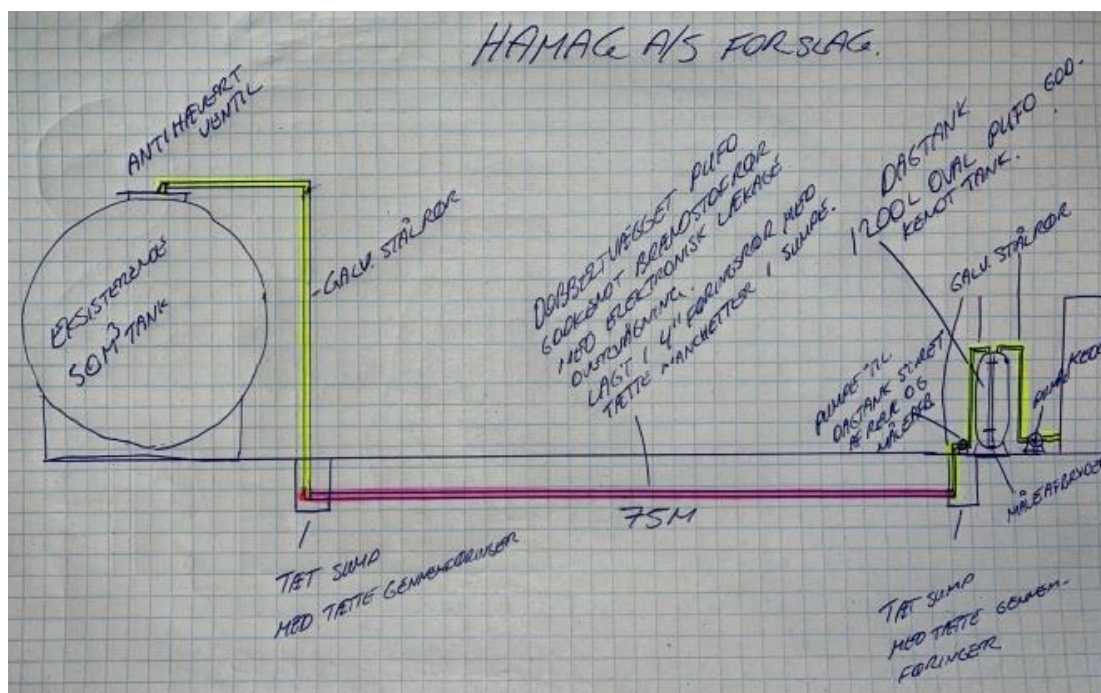 HAMAG A/S FORSLAG.
ANTI HÆVERT
VENTIL
EKSISTERENDE
50M³ TANK
GALV. STÅLRØR
DOBBELTVÆGGET PUFO
GODKENDT BRÆNDSTOFRØR
MED ELEKTRONISK LÆKAGE
OVERVÅGNING.
LAGT I 4" FORINGSRØR MED
TÆTTE MANCHETTER I SUMPE.
DAGTANK
1200L OVAL PUFO GOD-
KENDT TANK.
GALV. STÅLRØR
PUMPE TIL
DAGTANK STYRET
AF RELÆ OG
MÅLEAFB.
KEDEL
MÅLEAFBRYDER
75M
TÆT SUMP
MED TÆTTE GENNEMFØRINGER
TÆT SUMP
MED TÆTTE GENNEM-
FØRINGER